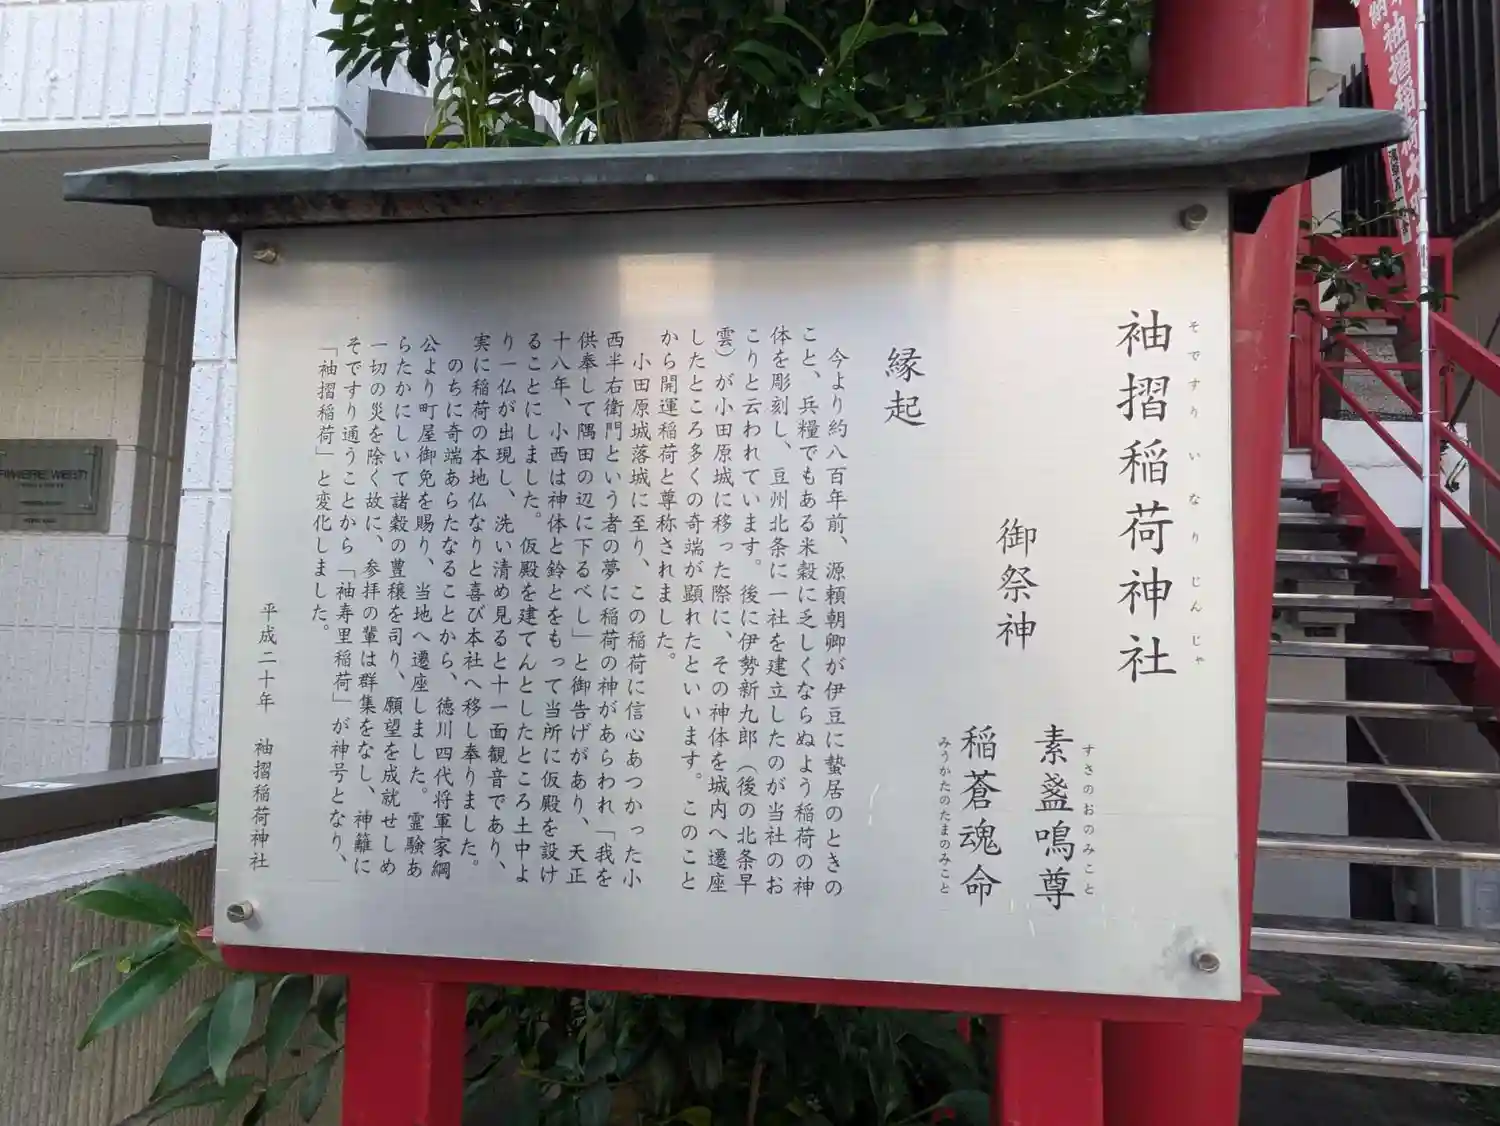 袖摺稲荷神社
そですりいなりじんじゃ
御祭神
素盞鳴尊
すさのおのみこと
稲蒼魂命
みうかたのたまのみこと
縁起
今より約八百年前、源頼朝卿が伊豆に蟄居のときの
こと、兵糧でもある米穀に乏しくならぬよう稲荷の神
体を彫刻し、豆州北条に一社を建立したのが当社のお
こりと云われています。後に伊勢新九郎（後の北条早
雲）が小田原城に移った際に、その神体を城内へ遷座
したところ多くの奇端が顕れたといいます。このこと
から開運稲荷と尊称されました。
小田原城落城に至り、この稲荷に信心あつかった小
西半右衛門という者の夢に稲荷の神があらわれ「我を
供奉して隅田の辺に下るべし」と御告げがあり、天正
十八年、小西は神体と鈴とをもって当所に仮殿を設け
ることにしました。仮殿を建てんとしたところ土中よ
り一仏が出現し、洗い清め見ると十一面観音であり、
実に稲荷の本地仏なりと喜び本社へ移し奉りました。
のちに奇端あらたなることから、徳川四代将軍家綱
公より町屋御免を賜り、当地へ遷座しました。霊験あ
らたかにしいて諸穀の豊穣を司り、願望を成就せしめ
一切の災を除く故に、参拝の輩は群集をなし、神籬に
そですり通うことから「袖寿里稲荷」が神号となり、
「袖摺稲荷」と変化しました。
平成二十年 袖摺稲荷神社
袖摺稲荷大